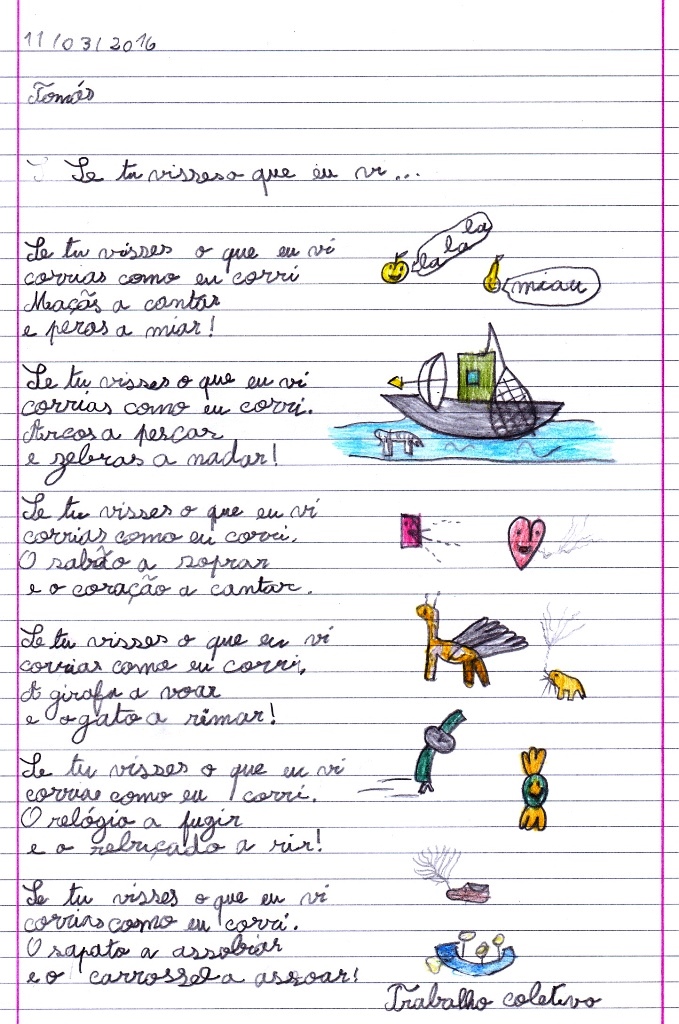 11/03/2016
Tomás
Se tu visses o que eu vi...
Se tu visses o que eu vi
corrias como eu corri
Maçãs a cantar
e peras a miar!
la la la
miau
Se tu visses o que eu vi
corrias como eu corri.
Arcos a pescar
e zebras a nadar!
Se tu visses o que eu vi
corrias como eu corri.
O sabão a soprar
e o coração a cantar.
Se tu visses o que eu vi
corrias como eu corri,
A girafa a voar
e o gato a rimar!
Se tu visses o que eu vi
corrias como eu corri.
O relógio a fugir
e o rebuçado a rir!
Se tu visses o que eu vi
corrias como eu corri.
O sapato a assobiar
e o carrossel a assoar!
Trabalho coletivo